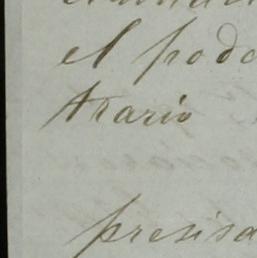 el pode
trario
presisa